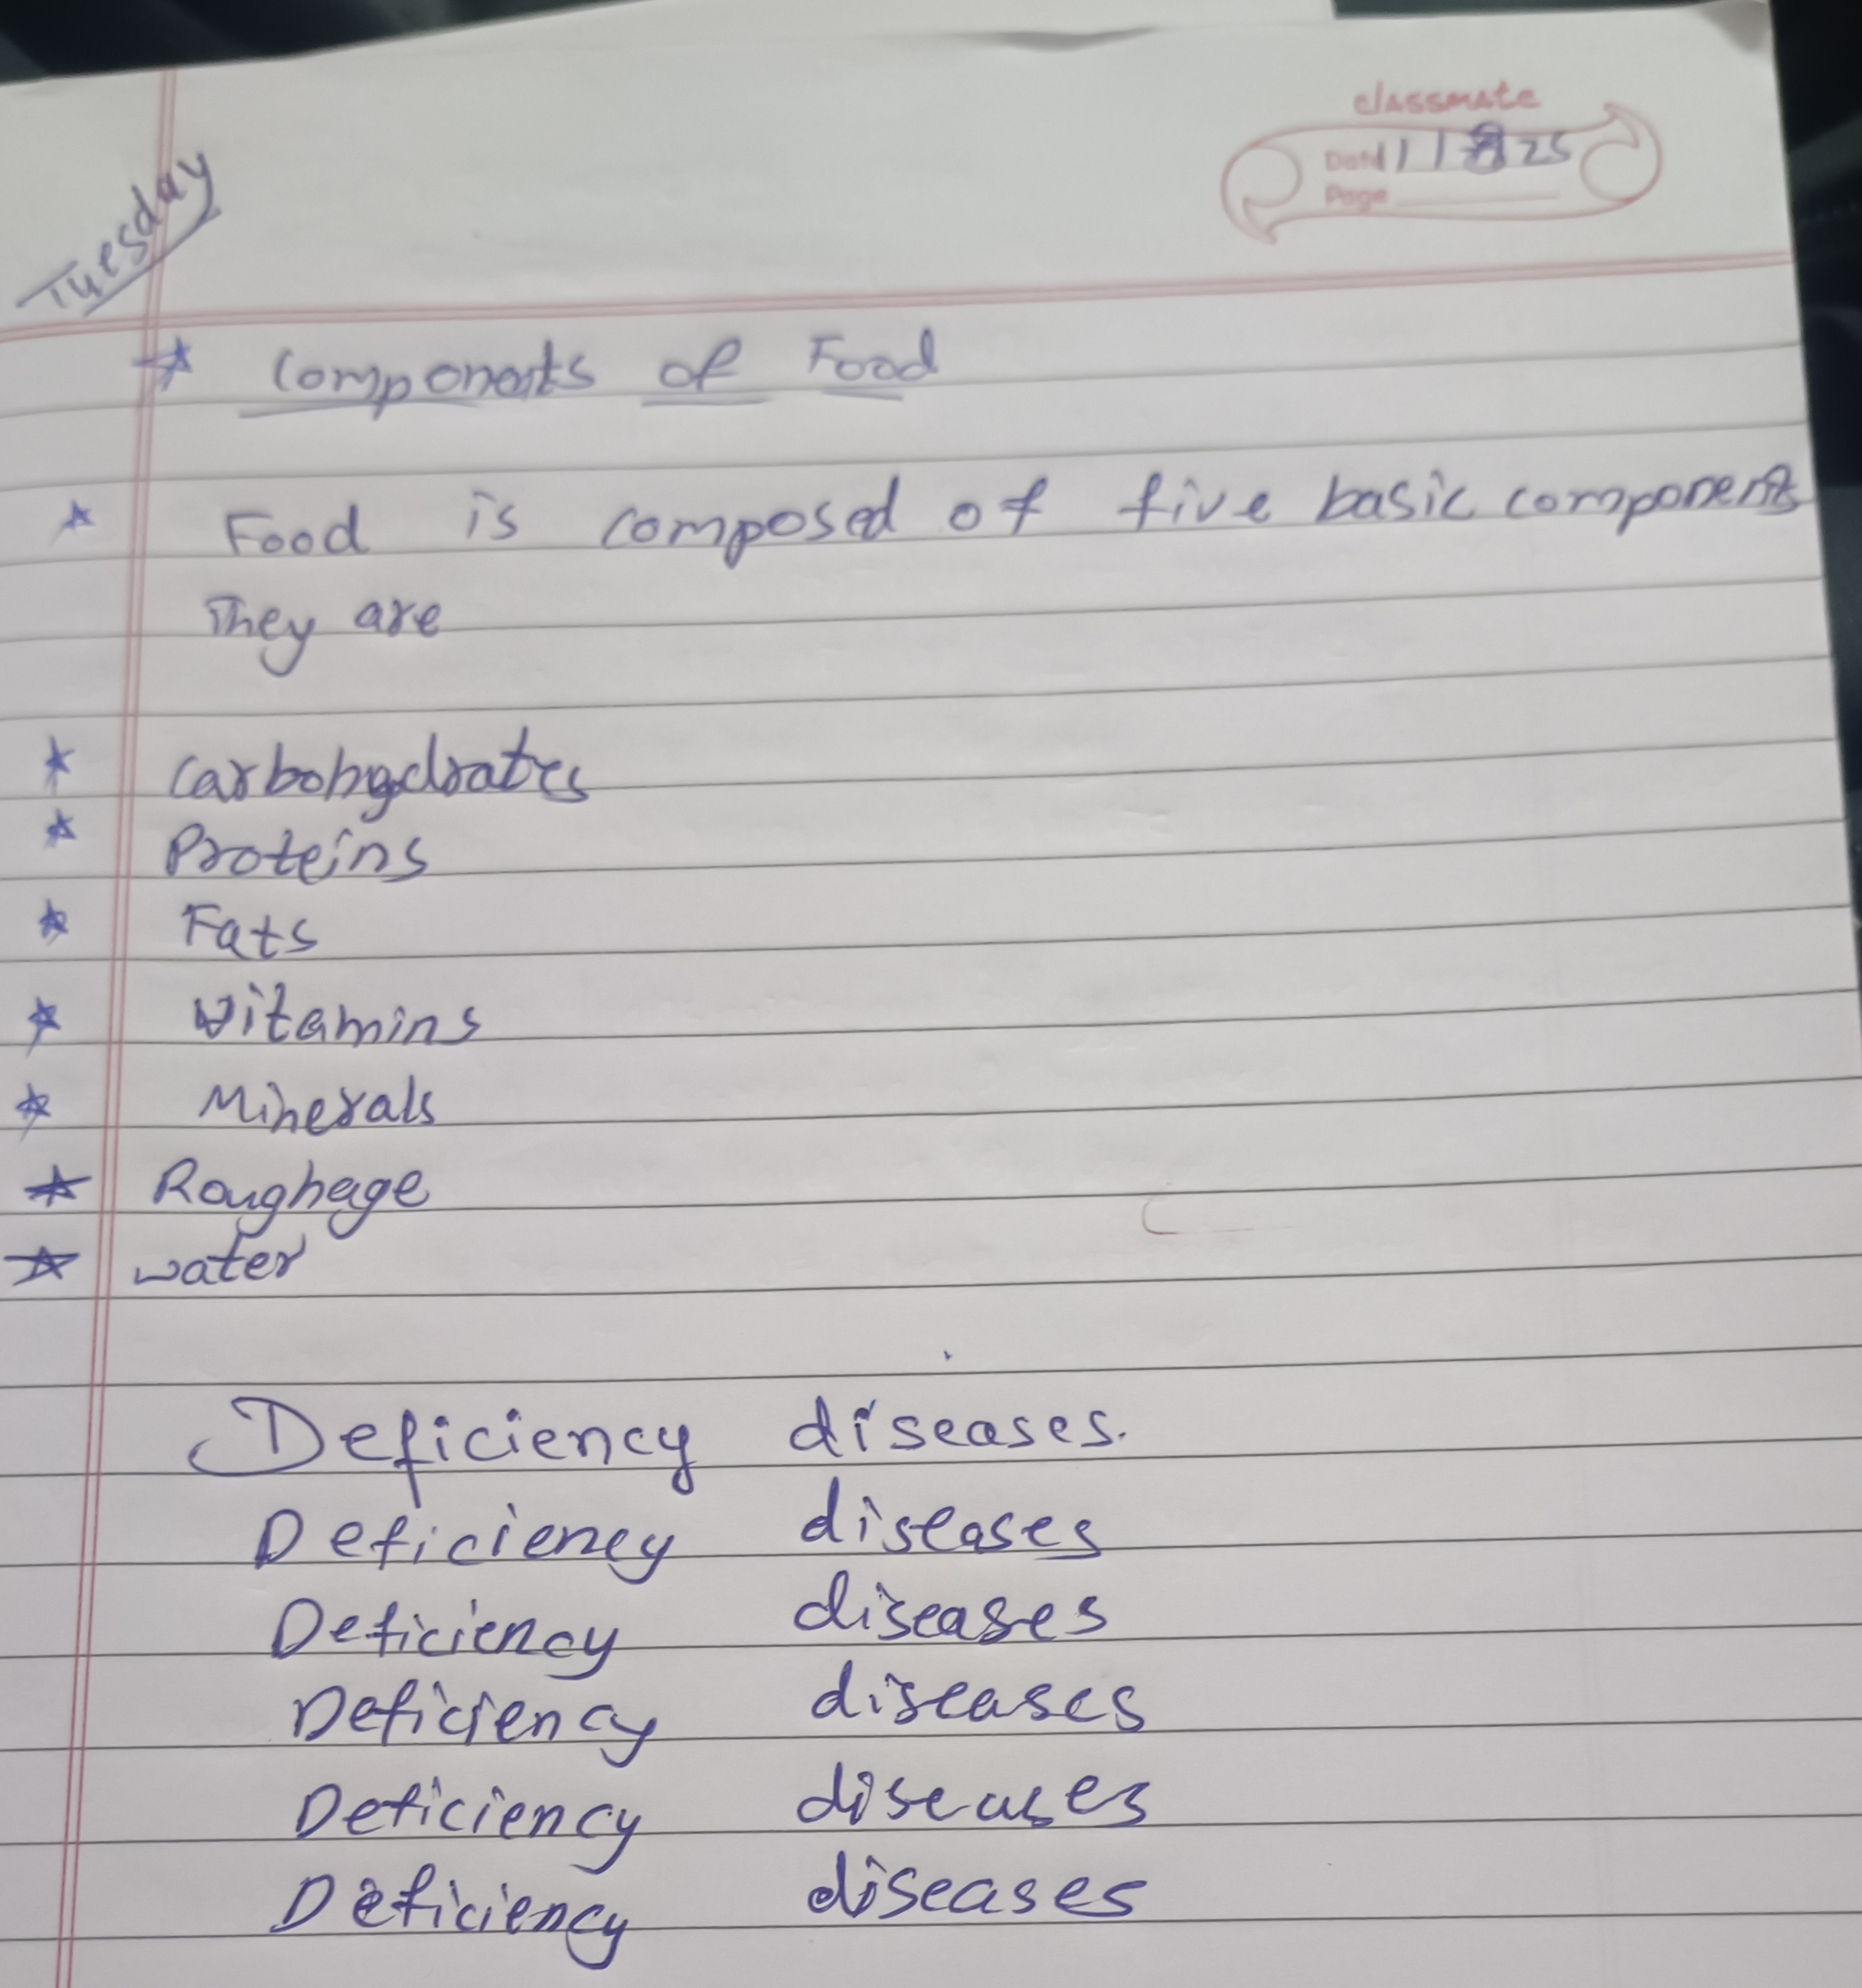 classmate
Date 11 25
Page
Tuesday
Components of Food
Food is composed of five basic components
They are
Carbohydrates
Proteins
Fats
Vitamins
Minerals
Roughage
water
Deficiency diseases.
Deficiency diseases
Deficiency diseases
Deficiency diseases
Deficiency diseases
Deficiency diseases